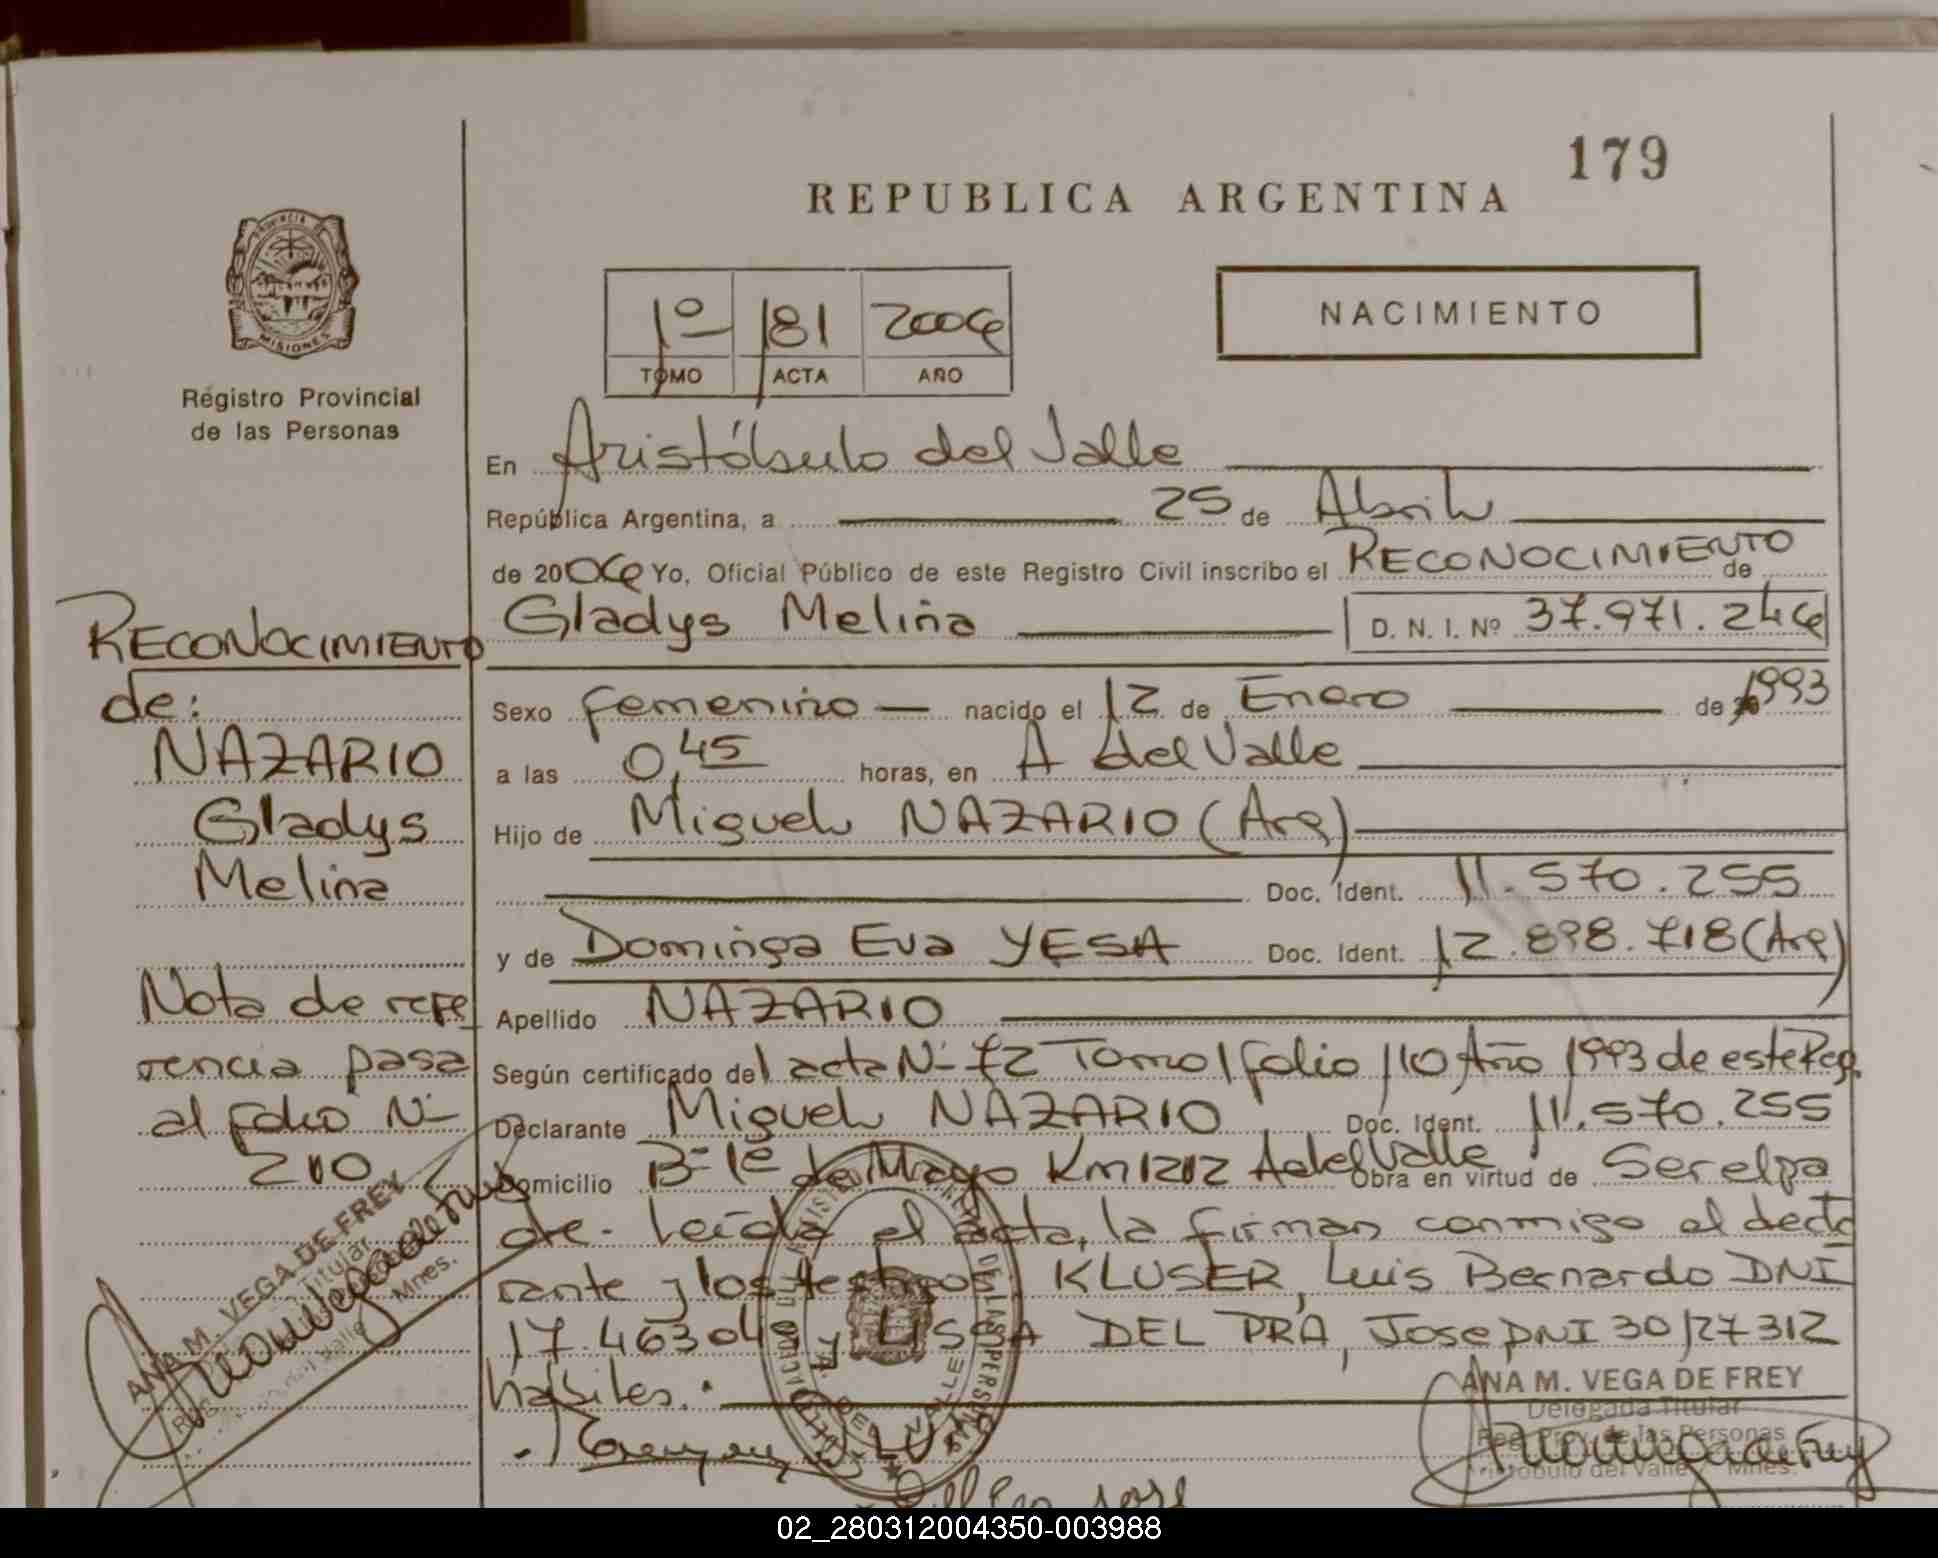 179
REPUBLICA ARGENTINA
PROVINCIA DE MISIONES
Registro Provincial
de las Personas
1º 181 2006
TOMO ACTA AÑO
NACIMIENTO
En Aristóbulo del Valle
República Argentina, a 25 de Abril
de 2006 Yo, Oficial Público de este Registro Civil inscribo el RECONOCIMIENTO de
Gladys Melina D. N. I. Nº 37.971.246
Sexo femenino nacido el 12 de Enero de 1993
a las 0,45 horas, en A del Valle
Hijo de Miguel NAZARIO (Arg)
Doc. Ident. 11.570.255
y de Dominga Eva YESA Doc. Ident. 12.898.718 (Arg)
Apellido NAZARIO
Según certificado del acta Nº 72 Tomo 1 folio 110 Año 1993 de este Reg.
Declarante Miguel NAZARIO Doc. Ident. 11.570.255
Domicilio Bº 1º de Mayo Km 1212 A del Valle Obra en virtud de Ser el pa
dre. Leída el acta, la firman conmigo el decla
rante y los testigos KLUSER, Luis Bernardo DNI
17.463.04 y LISSA DEL PRA, Jose DNI 30127312
habiles.
RECONOCIMIENTO
de:
NAZARIO
Gladys
Melina
Nota de refe
rencia pasa
al folio Nº
210
ANA M. VEGA DE FREY
Titular
Mnes.
ANA M. VEGA DE FREY
Delegada Titular
Reg. Prov. de las Personas
Aristóbulo del Valle Mnes.
02_280312004350-003988